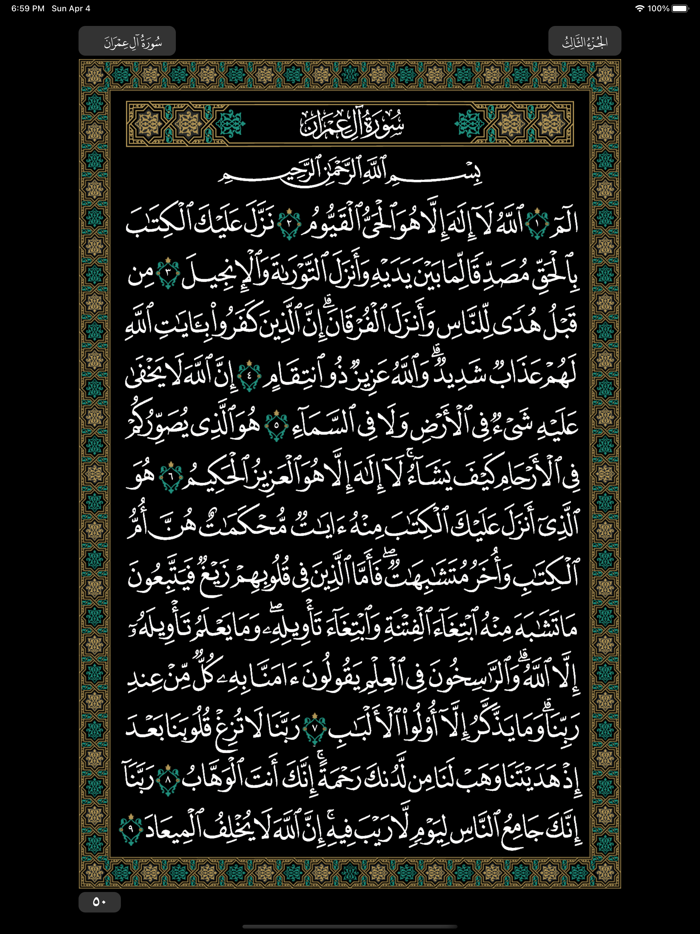 6:59 PM Sun Apr 4 100%
سُورَةُ آلِ عِمْرَانَ الجُزْءُ الثَّالِثُ
سُورَةُ آلِ عِمْرَانَ
بِسْمِ ٱللَّهِ ٱلرَّحْمَٰنِ ٱلرَّحِيمِ
الٓمٓ ١ ٱللَّهُ لَآ إِلَٰهَ إِلَّا هُوَ ٱلْحَىُّ ٱلْقَيُّومُ ٢ نَزَّلَ عَلَيْكَ ٱلْكِتَٰبَ
بِٱلْحَقِّ مُصَدِّقًا لِّمَا بَيْنَ يَدَيْهِ وَأَنزَلَ ٱلتَّوْرَىٰةَ وَٱلْإِنجِيلَ ٣ مِن
قَبْلُ هُدًى لِّلنَّاسِ وَأَنزَلَ ٱلْفُرْقَانَ ۗ إِنَّ ٱلَّذِينَ كَفَرُوا۟ بِـَٔايَٰتِ ٱللَّهِ
لَهُمْ عَذَابٌ شَدِيدٌ ۗ وَٱللَّهُ عَزِيزٌ ذُو ٱنتِقَامٍ ٤ إِنَّ ٱللَّهَ لَا يَخْفَىٰ
عَلَيْهِ شَىْءٌ فِى ٱلْأَرْضِ وَلَا فِى ٱلسَّمَآءِ ٥ هُوَ ٱلَّذِى يُصَوِّرُكُمْ
فِى ٱلْأَرْحَامِ كَيْفَ يَشَآءُ ۚ لَآ إِلَٰهَ إِلَّا هُوَ ٱلْعَزِيزُ ٱلْحَكِيمُ ٦ هُوَ
ٱلَّذِىٓ أَنزَلَ عَلَيْكَ ٱلْكِتَٰبَ مِنْهُ ءَايَٰتٌ مُّحْكَمَٰتٌ هُنَّ أُمُّ
ٱلْكِتَٰبِ وَأُخَرُ مُتَشَٰبِهَٰتٌ ۖ فَأَمَّا ٱلَّذِينَ فِى قُلُوبِهِمْ زَيْغٌ فَيَتَّبِعُونَ
مَا تَشَٰبَهَ مِنْهُ ٱبْتِغَآءَ ٱلْفِتْنَةِ وَٱبْتِغَآءَ تَأْوِيلِهِۦ ۗ وَمَا يَعْلَمُ تَأْوِيلَهُۥٓ
إِلَّا ٱللَّهُ ۗ وَٱلرَّٰسِخُونَ فِى ٱلْعِلْمِ يَقُولُونَ ءَامَنَّا بِهِۦ كُلٌّ مِّنْ عِندِ
رَبِّنَا ۗ وَمَا يَذَّكَّرُ إِلَّآ أُو۟لُوا۟ ٱلْأَلْبَٰبِ ٧ رَبَّنَا لَا تُزِغْ قُلُوبَنَا بَعْدَ
إِذْ هَدَيْتَنَا وَهَبْ لَنَا مِن لَّدُنكَ رَحْمَةً ۚ إِنَّكَ أَنتَ ٱلْوَهَّابُ ٨ رَبَّنَآ
إِنَّكَ جَامِعُ ٱلنَّاسِ لِيَوْمٍ لَّا رَيْبَ فِيهِ ۚ إِنَّ ٱللَّهَ لَا يُخْلِفُ ٱلْمِيعَادَ ٩
٥٠